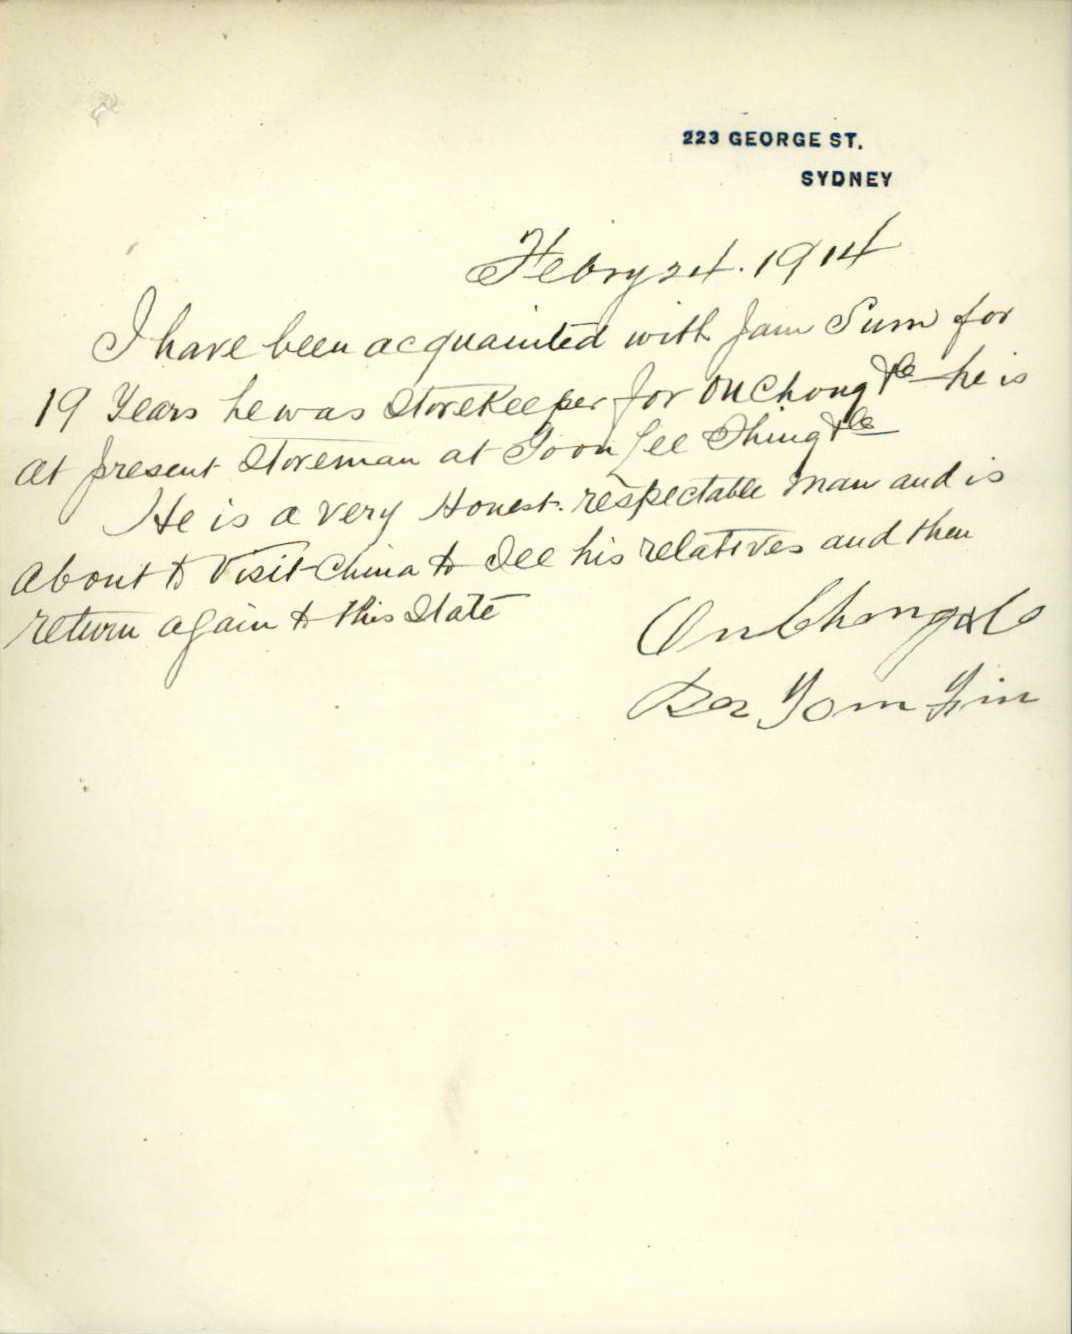 223 GEORGE ST.
SYDNEY
Febry 24. 1914
I have been acquainted with Jam Sum for
19 Years he was Storekeeper for On Chong & Co he is
at present Storeman at Goon Lee Shing & Co
He is a very Honest. respectable man and is
about to Visit China to See his relatives and then
return again to this State
On Chong & Co
Per Yom Yin